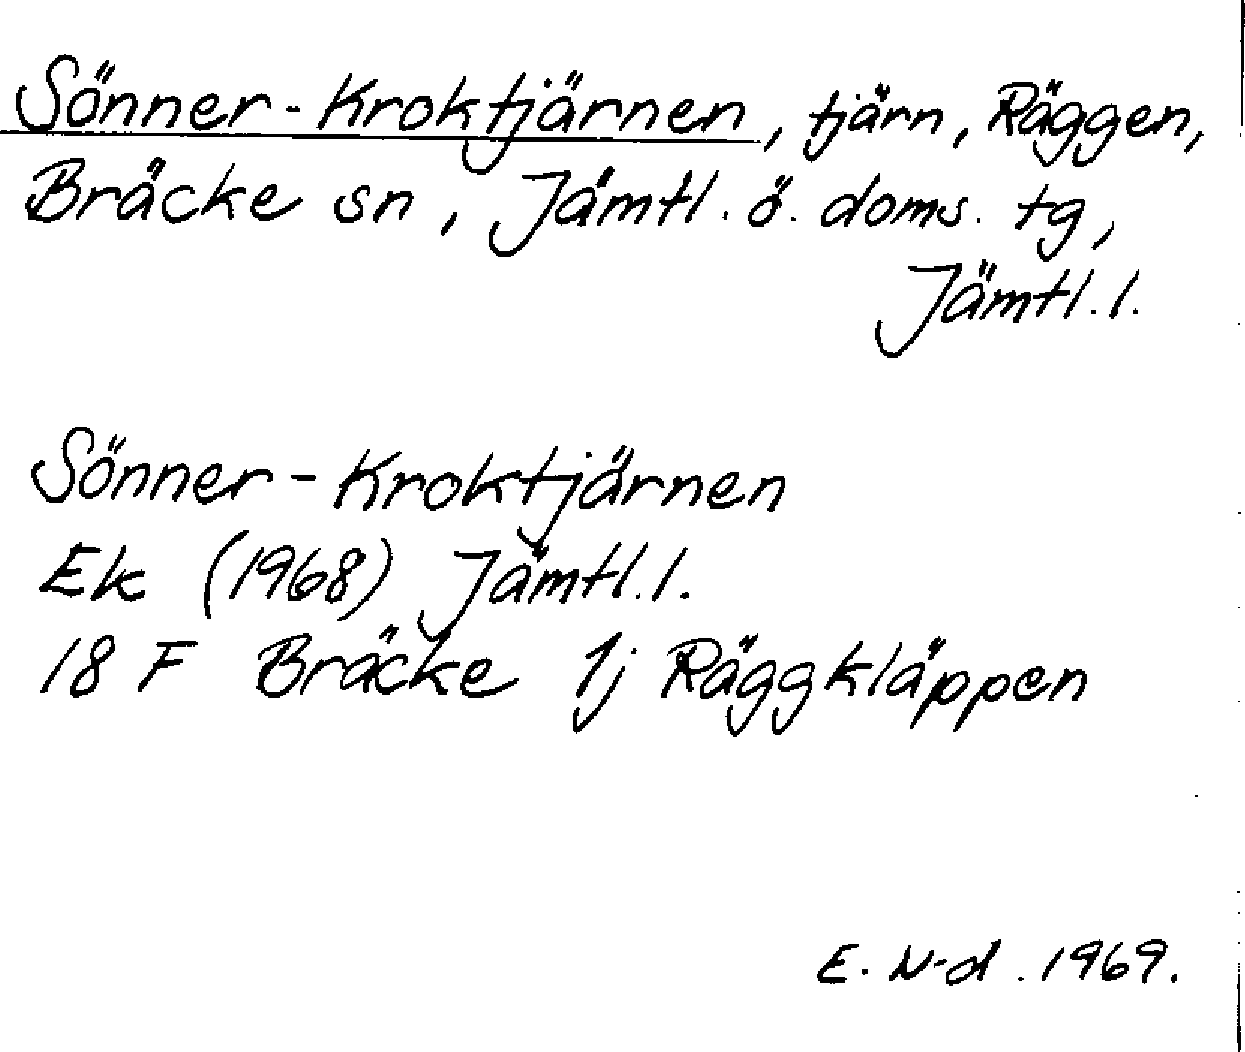 Sönner-Kroktjärnen, tjärn, Räggen,
Bräcke sn, Jämtl. ö. doms. tg,
Jämtl. l.
Sönner-Kroktjärnen
Ek (1968) Jämtl. l.
18 F Bräcke 1j Räggkläppen
E. N-d. 1969.